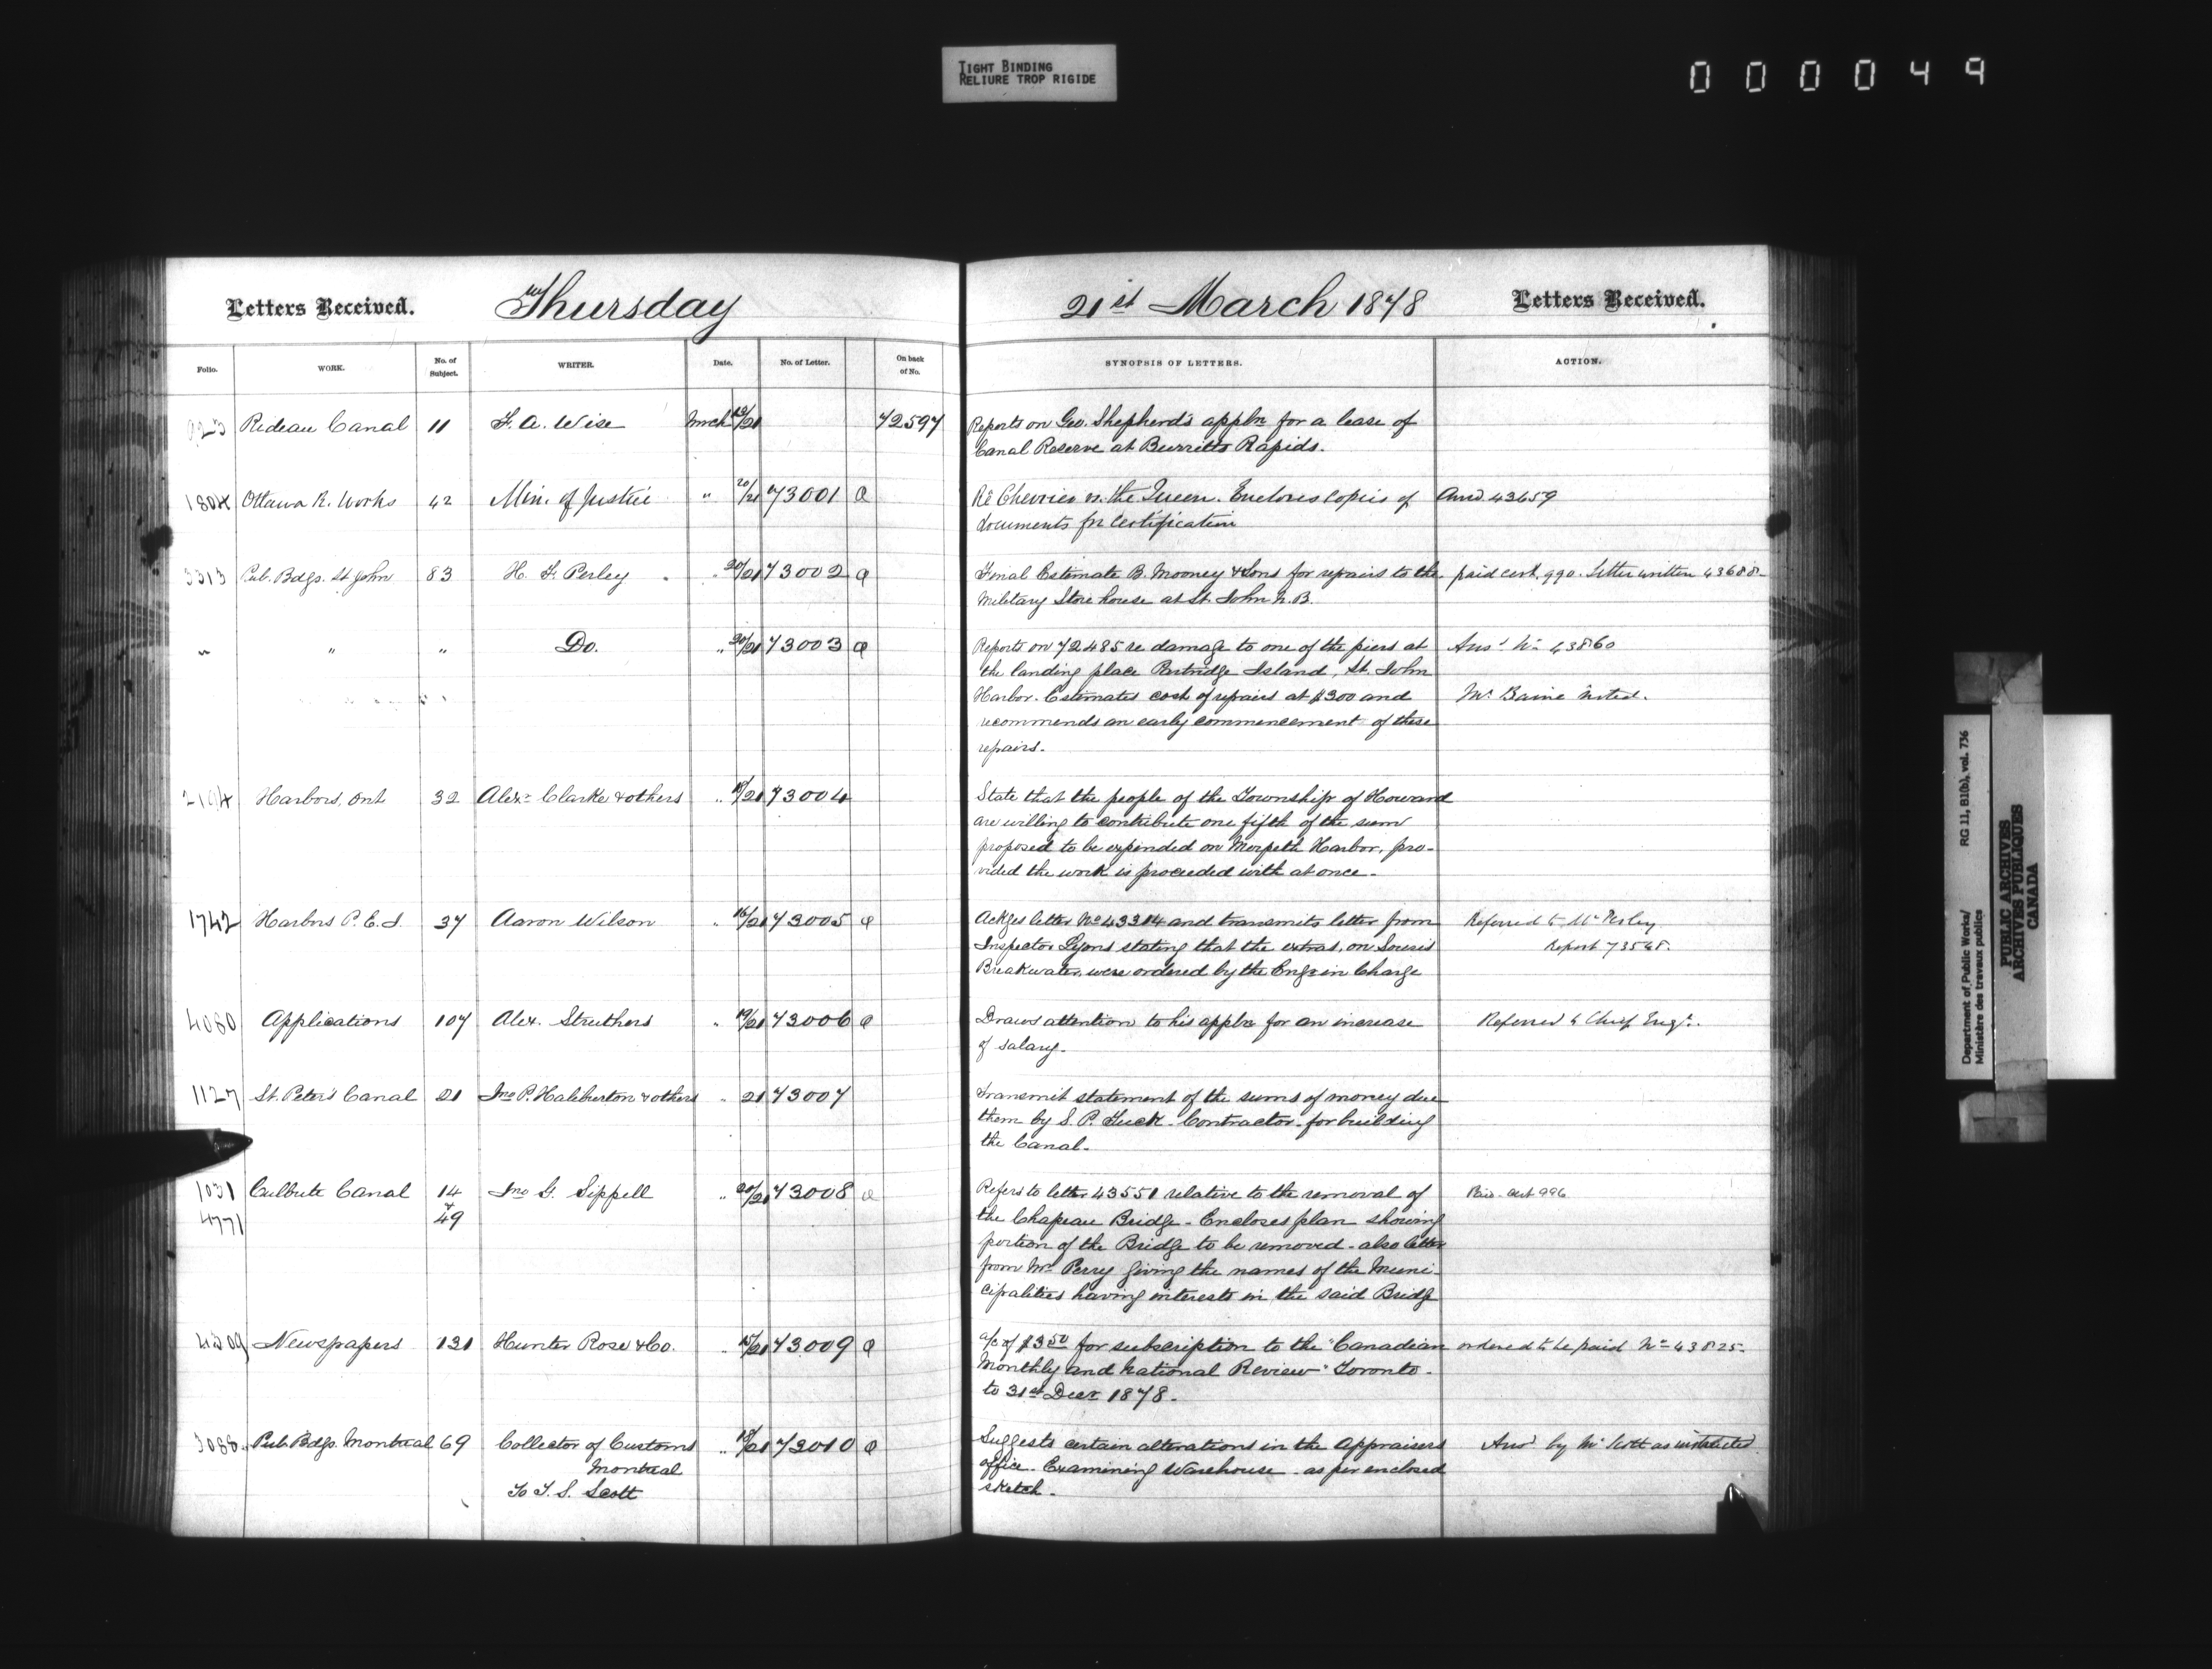 TIGHT BINDING
RELIURE TROP RIGIDE
000049
Letters Received. Thursday 21st March 1878 Letters Received.
Folio. WORK. No. of Subject. WRITER. Date. No. of Letter. On back of No. SYNOPSIS OF LETTERS. ACTION.
Rideau Canal 11 F. A. Wise Mrch 13/21 72597 Reports on Geo. Shepherd's appln for a lease of
Canal Reserve at Burritts Rapids.
1804 Ottawa R. Works 42 Min. of Justice " 20/21 73001 a Re Chevrier vs. the Queen. Encloses copies of Ansd 43659
documents for certification
3313 Pub. Bdgs. St John 83 H. F. Perley " 20/21 73002 a Final Estimate B. Mooney & Sons for repairs to the paid cert. 990. Letter written 43688
Military Store house at St. John N.B.
" " " Do. " 20/21 73003 a Reports on 72485 re damage to one of the piers at Ansd No 43860
the landing place Partridge Island, St. John
Harbor. Estimates cost of repairs at $300 and Mr Baine noted.
recommends an early commencement of these
repairs.
2194 Harbors, Ont 32 Alexr Clarke & others " 19/21 73004 State that the people of the Township of Howard
are willing to contribute one fifth of the sum
proposed to be expended on Morpeth Harbor, pro-
vided the work is proceeded with at once.
1742 Harbors P.E.I. 37 Aaron Wilson " 16/21 73005 a Ackges letter No 43314 and transmits letter from Referred to Mr Perley
Inspector Lyons stating that the extras, on Souris Report 73548.
Breakwater, were ordered by the Engr in Charge
4080 Applications 107 Alex. Struthers " 19/21 73006 a Draws attention to his appln for an increase Referred to Chief Engr.
of salary.
1127 St. Peter's Canal 21 Jno P. Haliburton & others " 21 73007 Transmit statement of the sums of money due
them by S. P. Tuck - Contractor - for building
the Canal.
1031 Culbute Canal 14 Jno G. Sippell " 20/21 73008 a Refers to letter 43551 relative to the removal of Paid - Cert 996
4771 & 49 the Chapeau Bridge - Encloses plan showing
portion of the Bridge to be removed - also letter
from Mr Perry giving the names of the Muni-
cipalities having interests in the said Bridge
4509 Newspapers 131 Hunter Rose & Co. " 15/21 73009 a a/c of $3.50 for subscription to the "Canadian ordered to be paid No 43825
Monthly and National Review" Toronto.
to 31st Decr 1878.
3088 Pub. Bdgs. Montreal 69 Collector of Customs " 18/21 73010 a Suggests certain alterations in the Appraisers Ansd by Mr Scott as instructed
Montreal office - Examining Warehouse - as per enclosed
To T. S. Scott sketch.
Department of Public Works/ RG 11, B1(b), vol. 736
Ministère des travaux publics
PUBLIC ARCHIVES
ARCHIVES PUBLIQUES
CANADA